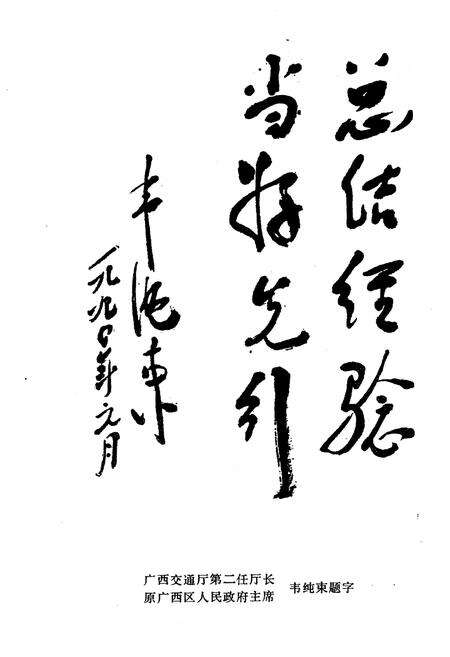 总结经验
当好先引
韦纯束
一九九〇年元月
广西交通厅第二任厅长
原广西区人民政府主席
韦纯束题字